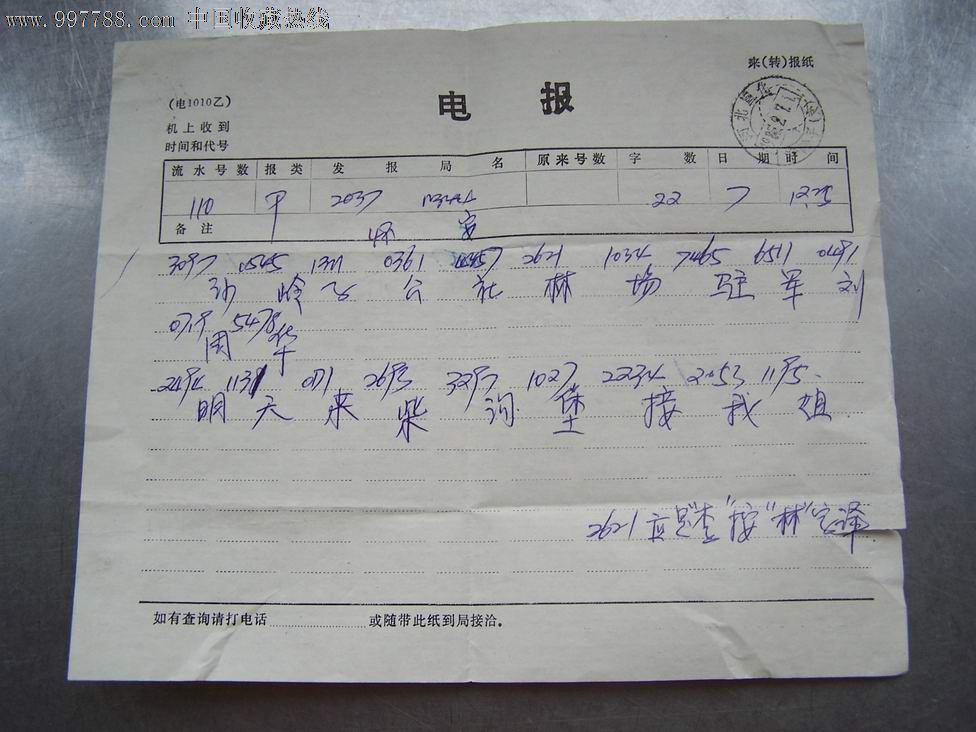 www.997788.com 中国收藏热线
来(转)报纸
(电1010乙)
电 报
机上收到
时间和代号
流水号数 报类 发报局名 原来号数 字数 日期 时间
110 2037 22 7 1225
备注 怀安
3097 0545 0361 2621 1034 7465 6511 0491
沙岭子公社林场驻军刘
5478
国华
1131 2693 1027 2234 2053 1195
明天来柴沟堡接我姐
2621应是"查"按"林"字译
如有查询请打电话 或随带此纸到局接洽。